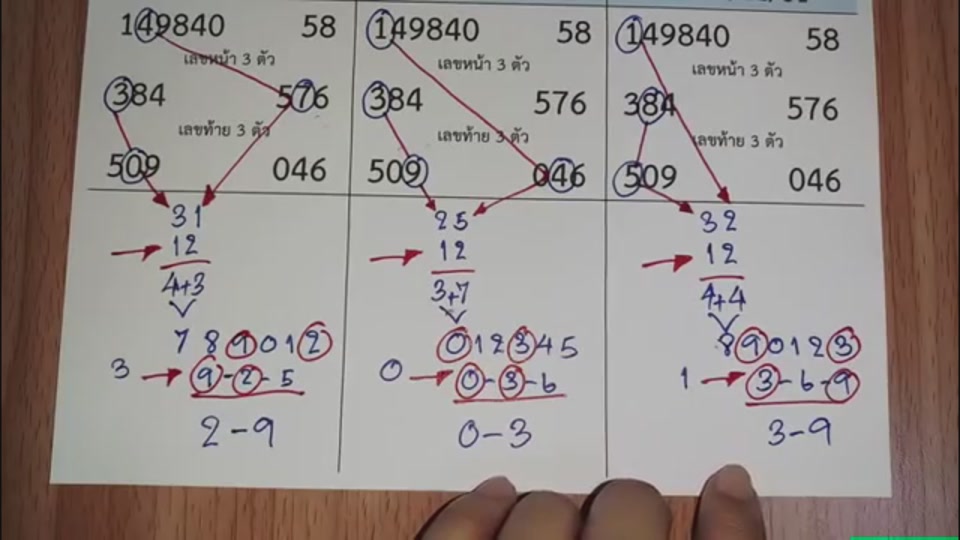 149840 58
เลขหน้า 3 ตัว
384 576
เลขท้าย 3 ตัว
509 046
31
12
4+3
7 8 9 0 1 2
3 9-2-5
2-9
149840 58
เลขหน้า 3 ตัว
384 576
เลขท้าย 3 ตัว
509 046
25
12
3+7
0 1 2 3 4 5
0 0-3-6
0-3
149840 58
เลขหน้า 3 ตัว
384 576
เลขท้าย 3 ตัว
509 046
32
12
4+4
8 9 0 1 2 3
1 3-6-9
3-9